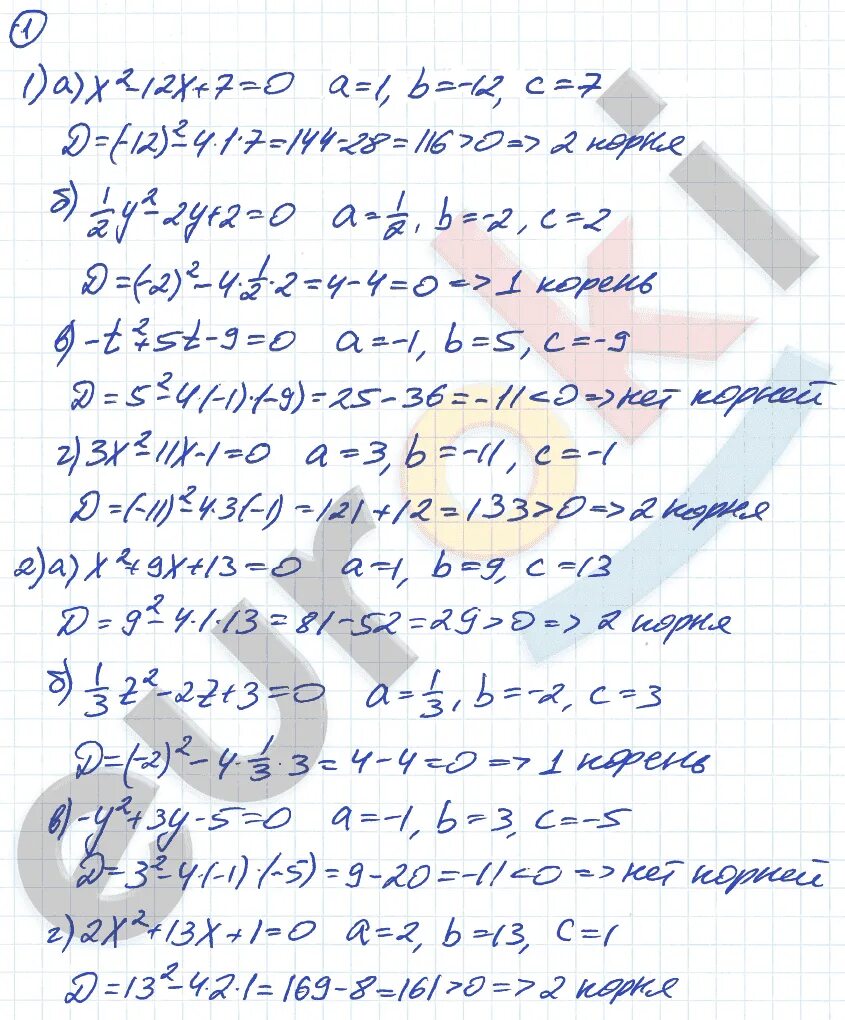 1
1) а) x²-12x+7=0 a=1, b=-12, c=7
D=(-12)²-4·1·7=144-28=116>0=> 2 корня
б) 1/2 y²-2y+2=0 a=1/2, b=-2, c=2
D=(-2)²-4·1/2·2=4-4=0=>1 корень
в) -t²+5t-9=0 a=-1, b=5, c=-9
D=5²-4·(-1)·(-9)=25-36=-11<0=>нет корней
г) 3x²-11x-1=0 a=3, b=-11, c=-1
D=(-11)²-4·3(-1)=121+12=133>0=>2 корня
2) а) x²+9x+13=0 a=1, b=9, c=13
D=9²-4·1·13=81-52=29>0=> 2 корня
б) 1/3 z²-2z+3=0 a=1/3, b=-2, c=3
D=(-2)²-4·1/3·3=4-4=0=>1 корень
в) -y²+3y-5=0 a=-1, b=3, c=-5
D=3²-4·(-1)·(-5)=9-20=-11<0=>нет корней
г) 2x²+13x+1=0 a=2, b=13, c=1
D=13²-4·2·1=169-8=161>0=>2 корня
euroki